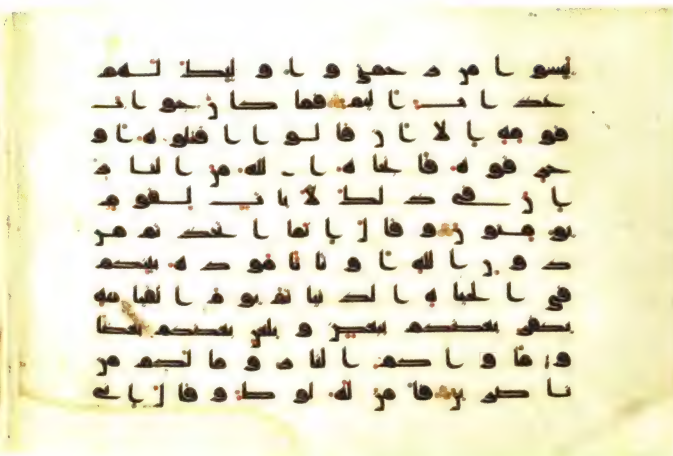 يسوا من رحمتي واوليك لهم
عذاب اليم فما كان جواب
قومه الا ان قالوا اقتلوه او
حرقوه فانجاه الله من النار
ان في ذلك لايت لقوم
يومنون وقال انما اتخذتم من
دون الله اوثانا مودة بينكم
في الحياة الدنيا ثم يوم القيامة
يكفر بعضكم ببعض ويلعن بعضكم بعضا
وماواكم النار وما لكم من
ناصرين فامن له لوط وقال اني